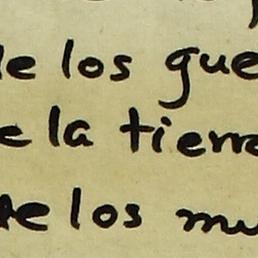 de los que
e la tierra
te los mu